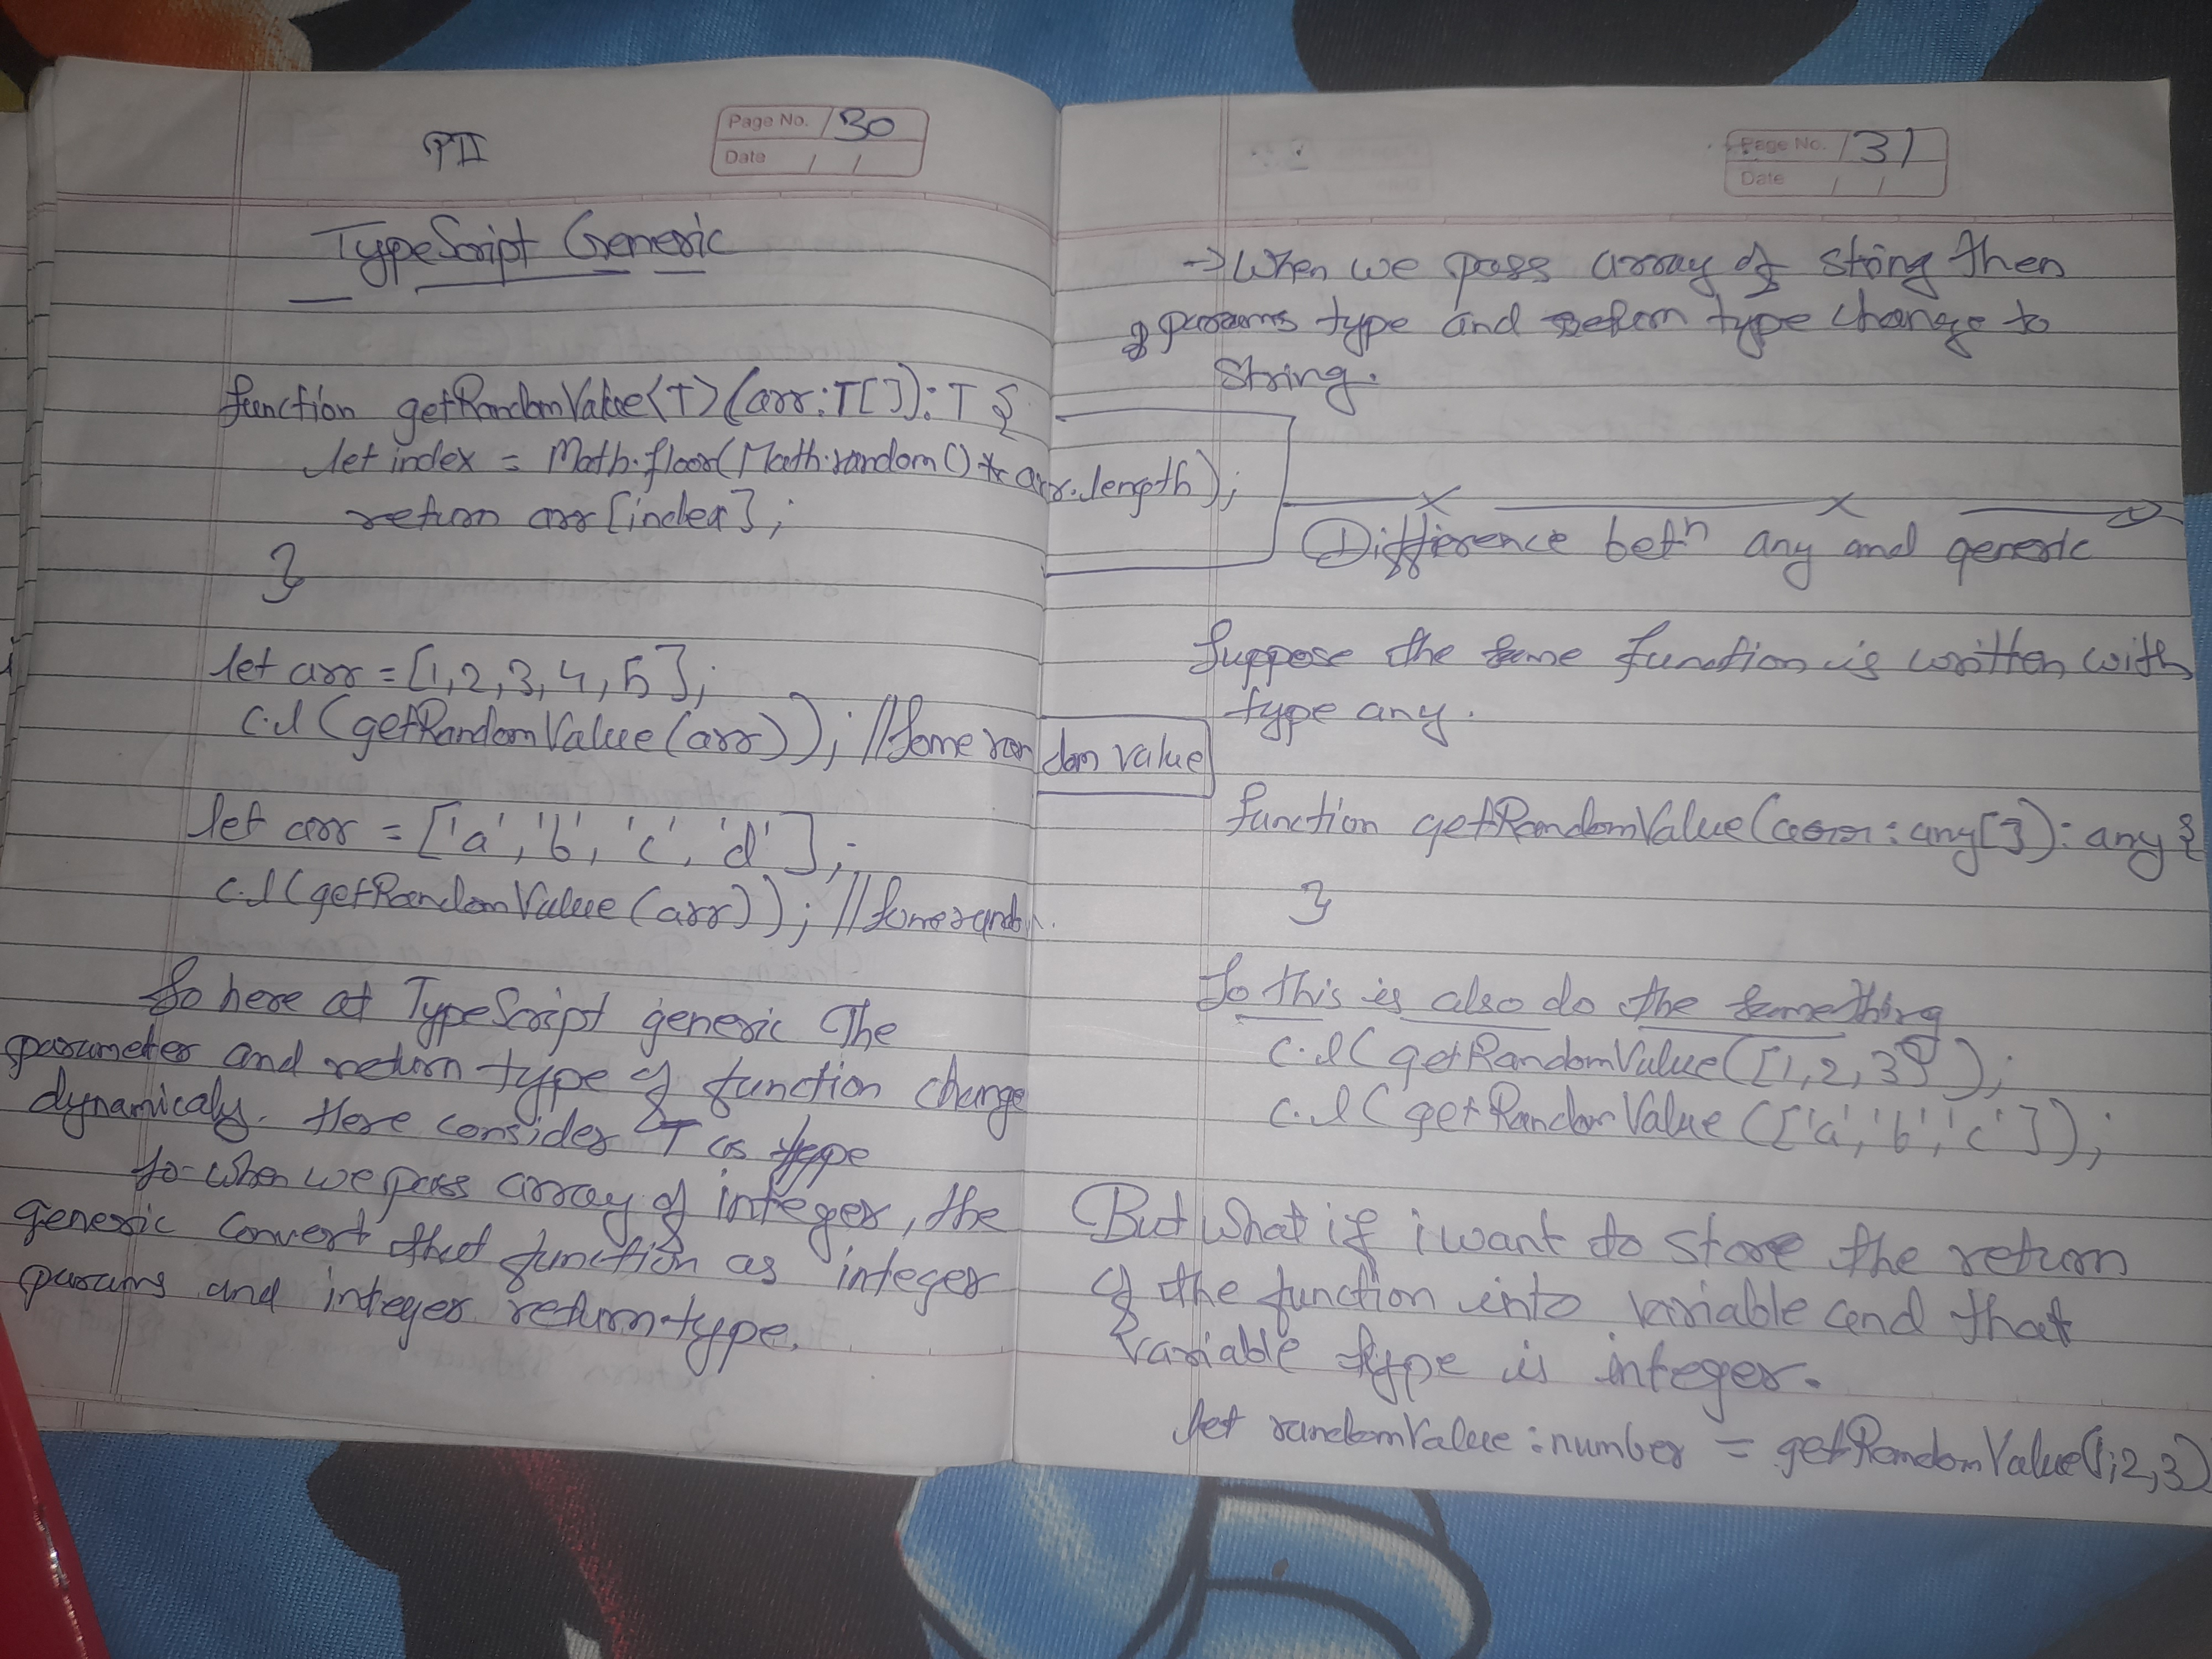 PII
Page No. 30
Date / /
TypeScript Generic
function getRandomValue<T>(arr:T[]):T {
let index = Math.floor(Math.random()*arr.length);
return arr[index];
}
let arr = [1,2,3,4,5];
c.l(getRandomValue(arr)); //Some random value
let arr = ['a','b','c','d'];
c.l(getRandomValue(arr)); //Some random.
So here at TypeScript generic The
parameter and return type of function change
dynamicaly. Here consider T as type
so when we pass array of integer, the
generic convert that function as integer
params and integer return type.
Page No. 31
Date / /
→ When we pass array of string then
params type and return type change to
String.
Difference betn any and generic
Suppose the same function is written with
type any.
function getRandomValue(arr: any[]): any {
}
So this is also do the same thing
c.l(getRandomValue([1,2,3]);
c.l(getRandomValue(['a','b','c']);
But what if i want to store the return
of the function into variable and that
variable type is integer.
let randomValue: number = getRandomValue(1,2,3)